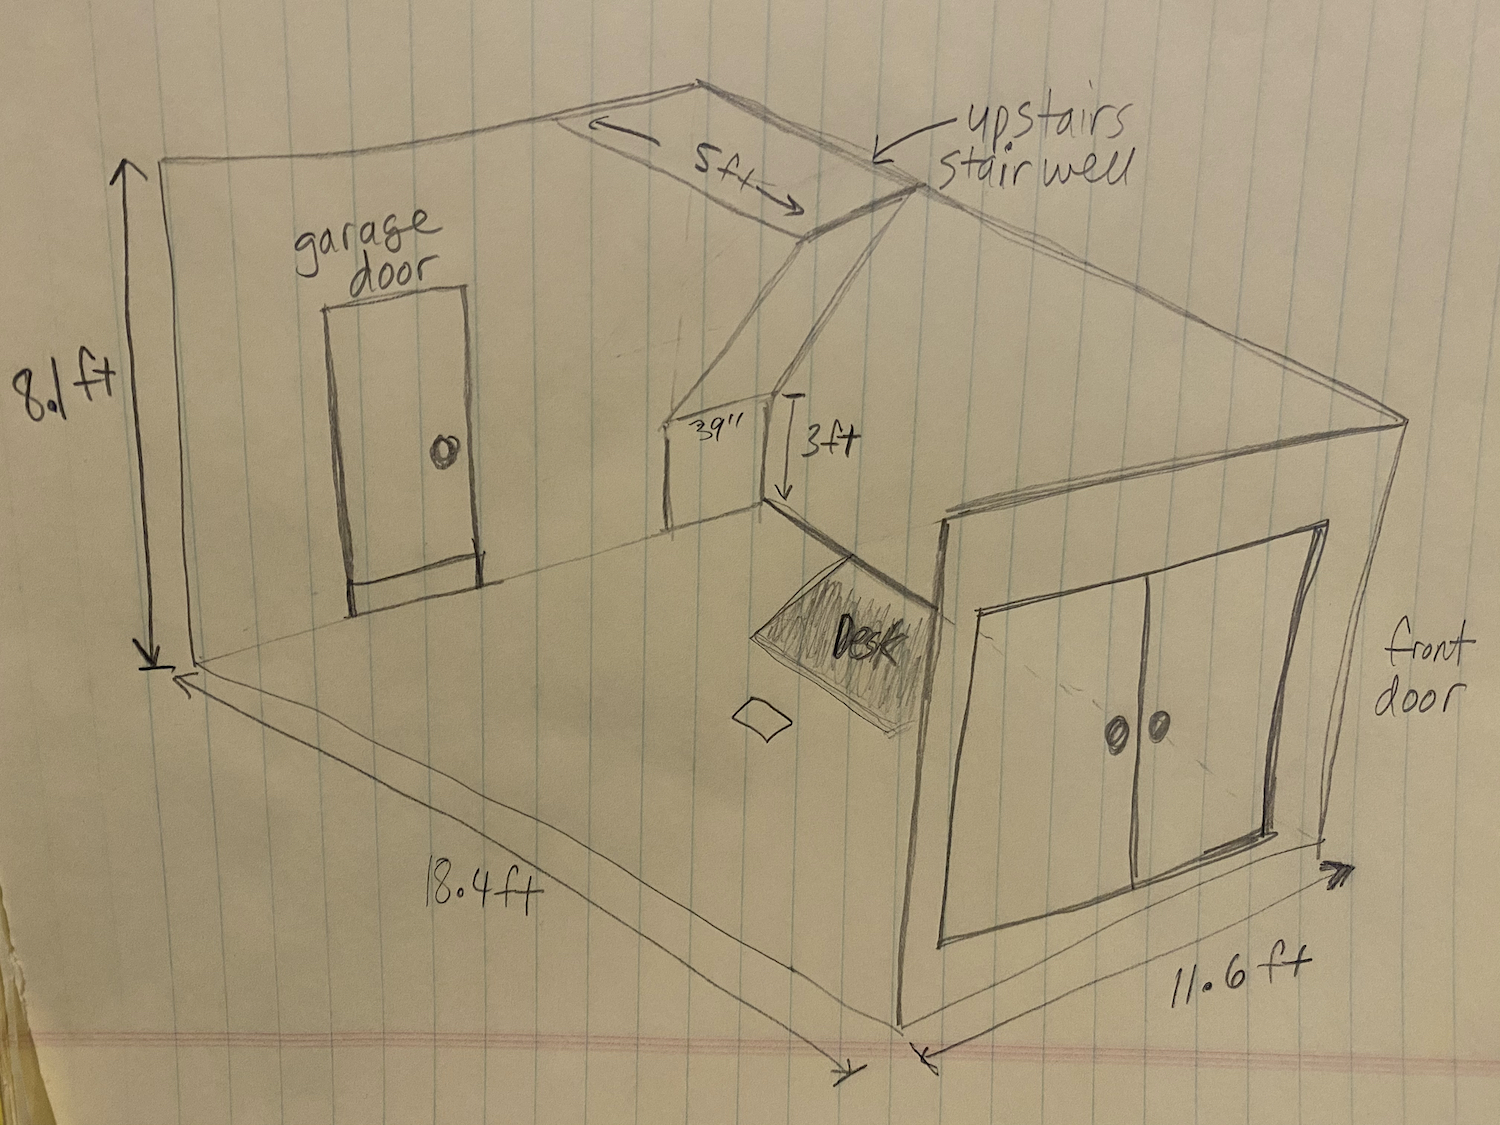 upstairs
stairwell
5ft
garage
door
8.1ft
39"
3ft
Desk
front
door
18.4ft
11.6ft